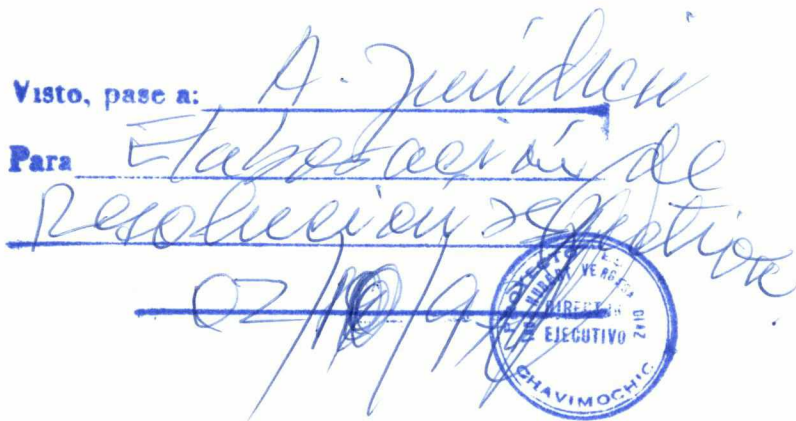 Visto, pase a: A. Jurídica
Para Elaboración de
Resolución respectiva
02/10/9
PROYECTO E.
HUBERT VERGARA DIAZ
DIRECTOR
EJECUTIVO
CHAVIMOCHIC